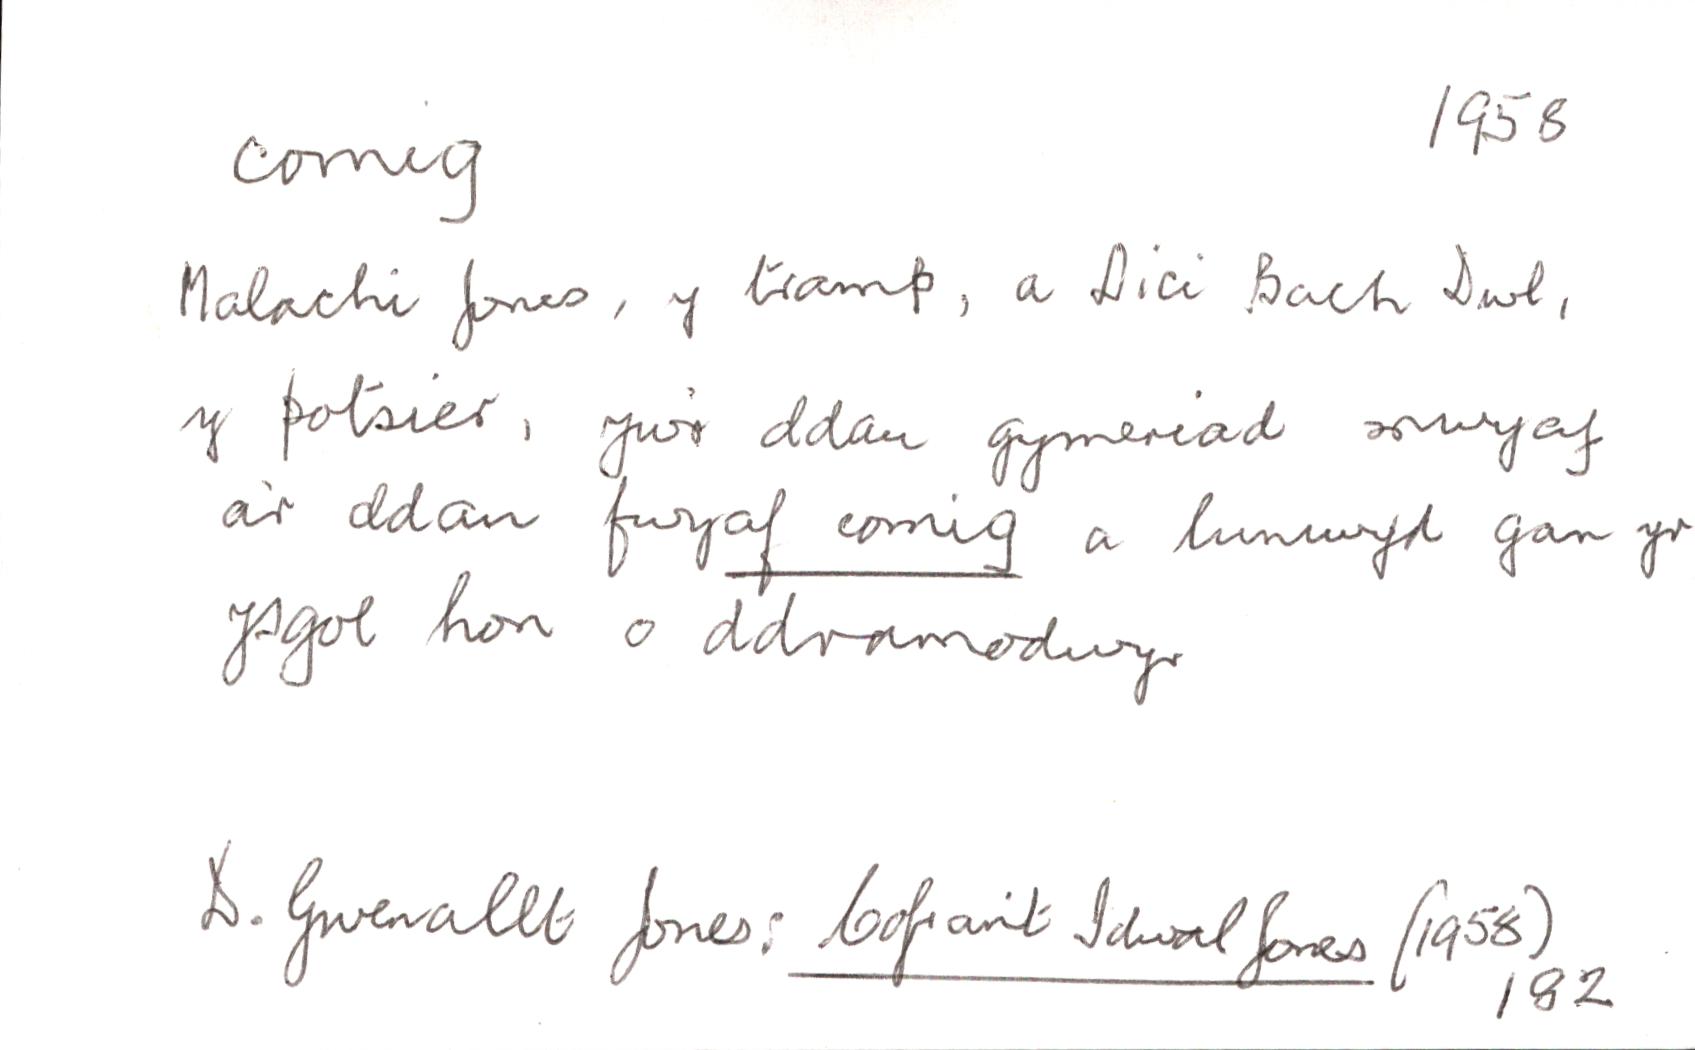 1958
comig
Malachi Jones, y tramp, a Dici Bach Dwl,
y potsier, yw'r ddau gymeriad mwyaf
a'r ddau fwyaf comig a luniwyd gan yr
ysgol hon o ddramodwyr
D. Gwenallt Jones: Cofiant Idwal Jones (1958)
182